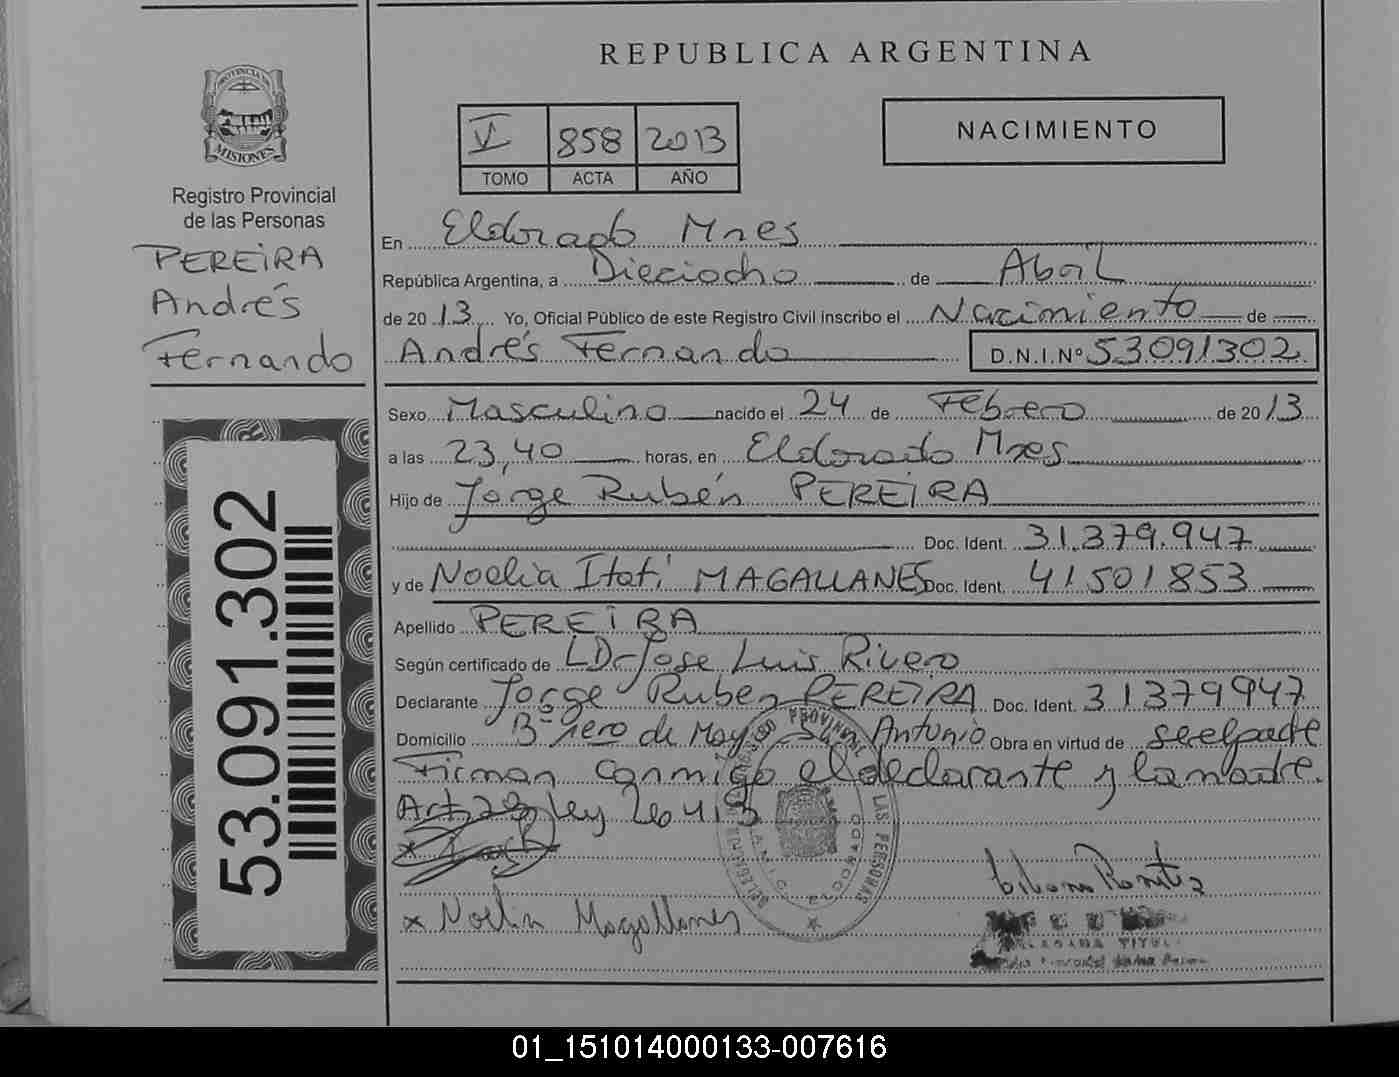 REPUBLICA ARGENTINA
PROVINCIA DE
MISIONES
Registro Provincial
de las Personas
PEREIRA
Andrés
Fernando
53.091.302
V 858 2013
TOMO ACTA AÑO
NACIMIENTO
En Eldorado Mnes
República Argentina, a Dieciocho de Abril
de 2013 Yo, Oficial Público de este Registro Civil inscribo el Nacimiento de
Andrés Fernando D.N.I.Nº 53091302
Sexo Masculino nacido el 24 de Febrero de 2013
a las 23,40 horas, en Eldorado Mnes
Hijo de Jorge Rubén PEREIRA
Doc. Ident. 31.379.947
y de Noelia Itatí MAGALLANES Doc. Ident. 41501853
Apellido PEREIRA
Según certificado de LDr Jose Luis Rivero
Declarante Jorge Ruben PEREIRA Doc. Ident. 31379947
Domicilio Bº 1ero de Mayo Antonio Obra en virtud de ser el padre
Firman conmigo el declarante y la madre.
Art 29 ley 26413
x Noelia Magallanes
LAS PERSONAS
01_151014000133-007616